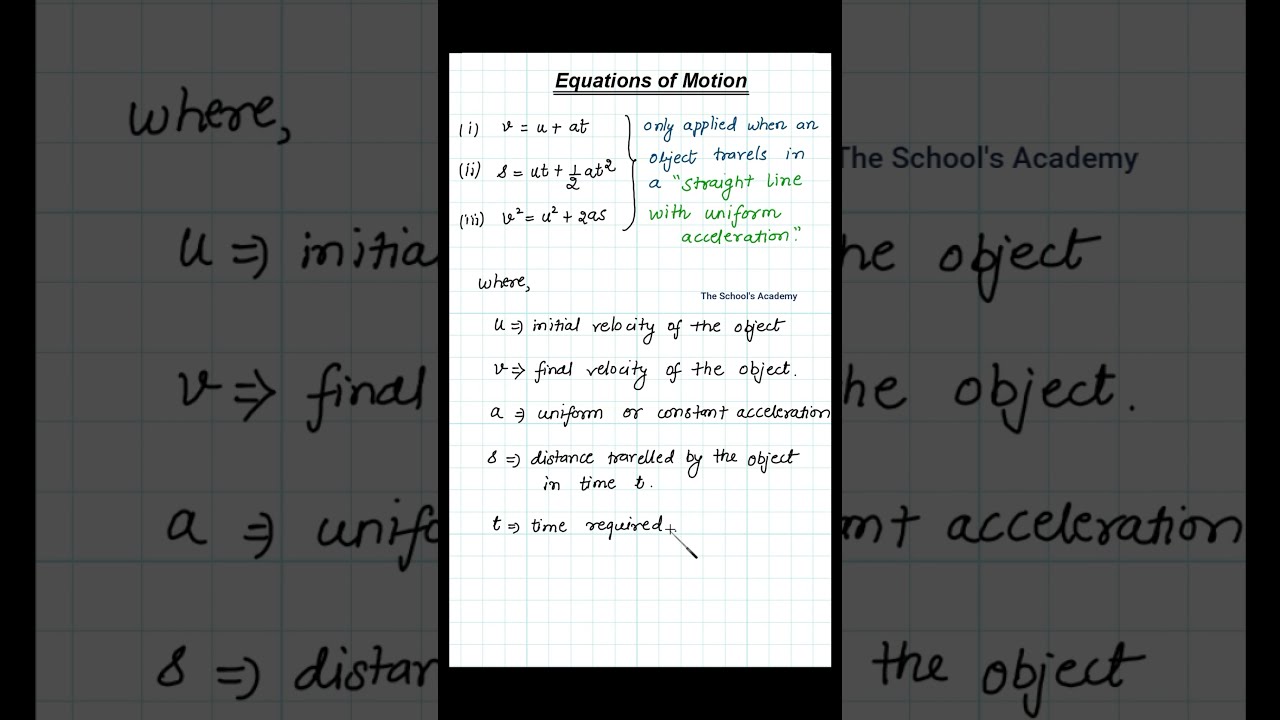 Equations of Motion
(i) v = u + at
(ii) s = ut + 1/2 at²
(iii) v² = u² + 2as
only applied when an
object travels in
a "straight line
with uniform
acceleration."
where,
The School's Academy
u => initial velocity of the object
v => final velocity of the object.
a => uniform or constant acceleration
s => distance travelled by the object
in time t.
t => time required
where,
The School's Academy
u => initia
he object
v => final
he object.
a => unifo
nt acceleration
s => distan
the object